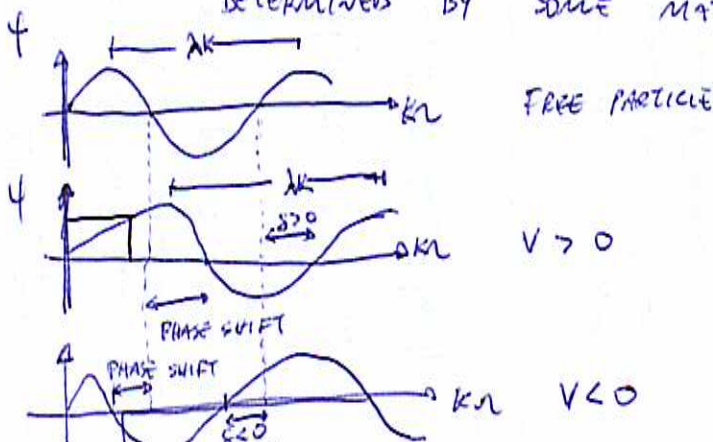 DETERMINED BY SOME
ψ
λK
Kr FREE PARTICLE
ψ
λK
δ>0
Kr V > 0
PHASE SHIFT
PHASE SHIFT
Kr V < 0
<0